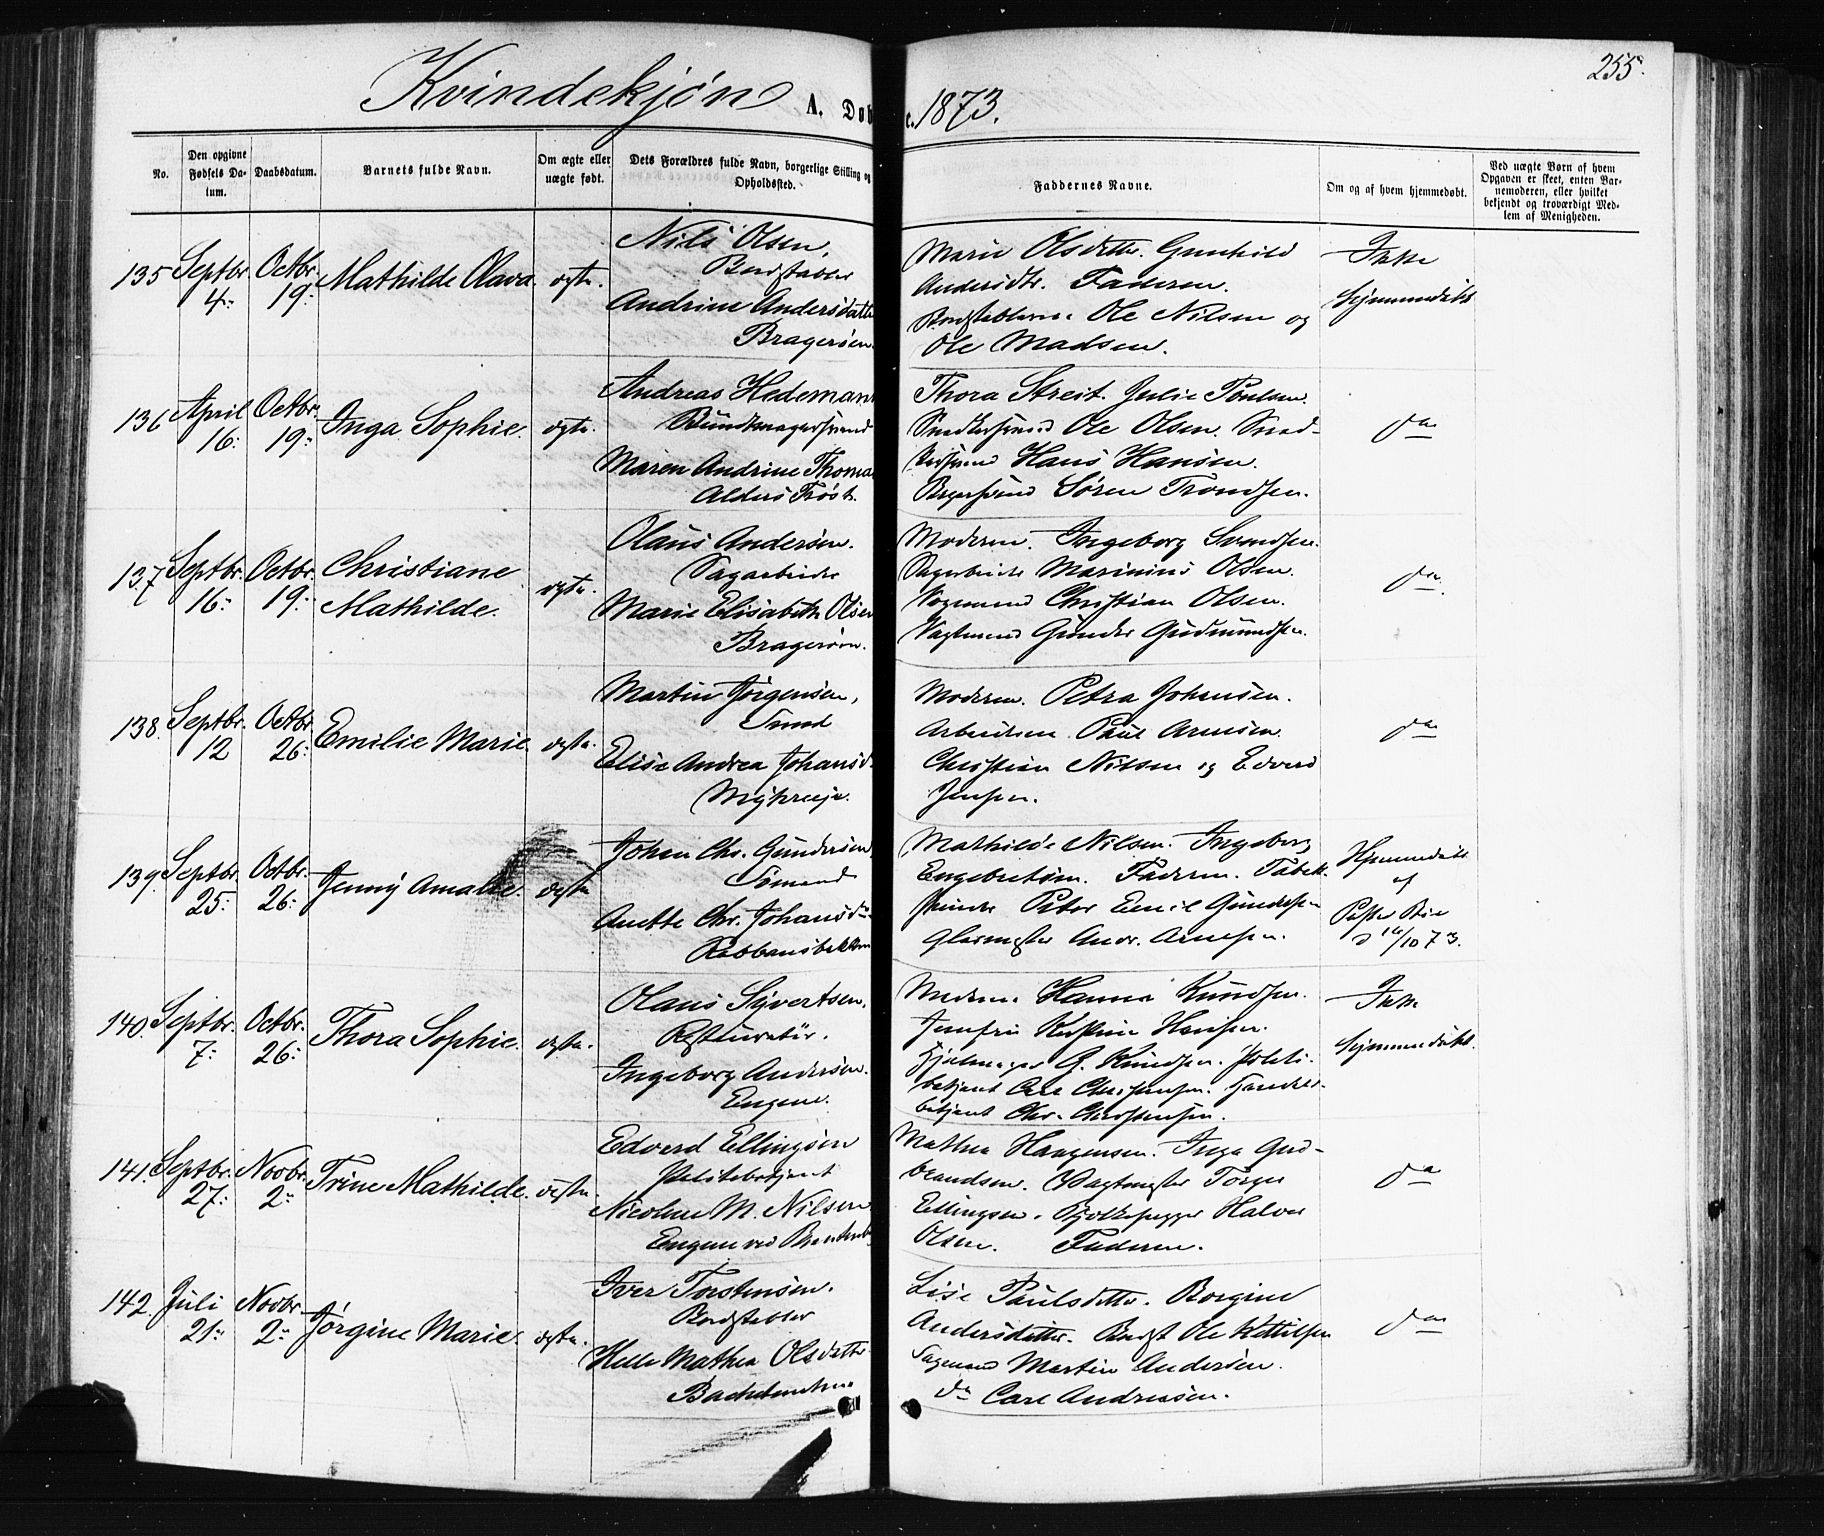 255.
Kvindekjøn A. Døb e. 1873.
No.
Den opgivne Fødsels Da-tum.
Daabsdatum.
Barnets fulde Navn.
Om ægte eller uægte født.
Dets Forældres fulde Navn, borgerlige Stilling og Opholdssted.
Faddernes Navne.
Om og af hvem hjemmedøbt.
Ved uægte Børn af hvem Opgaven er skeet, enten Bar-nemoderen, eller hvilket bekjendt og troværdigt Med-lem af Menigheden.
135 Septbr. 4. Octbr. 19. Mathilde Olava. ægte.
Nils Olsen,
Bordstabler
Andrine Andersdatt
Bragerøen.
Marie Olsdatter. Gunhild
Andersdtr. Faderen.
Bordstablerne Ole Nilsen og
Ole Madsen.
Ikke
hjemmedøbt
136 April 16. Octbr. 19. Inga Sophie. ægte.
Andreas Hedeman
Bundtmagersvend
Maren Andrine Thoma
Alders Trøst.
Thora Streit. Julie Poulsen.
Snedkersvend Ole Olsen. Sned-
kersvend Hans Hansen.
Bagersvend Søren Trondsen.
do
137 Septbr. 16. Octbr. 19. Christiane
Mathilde. ægte.
Olaus Andersen.
Sagarbeider
Marie Elisabeth Olsen
Bragerøen.
Moderen. Ingeborg Svendsen.
Sagarbeider Marinius Olsen.
Vognmand Christian Olsen.
Vagtmand Gunder Gudmundsen.
do.
138. Septbr. 12 Octbr. 26. Emilie Marie. ægte.
Martin Jørgensen,
Smed
Elise Andrea Johansd.
Nykreije.
Moderen. Petra Johansen.
Arbeidsm. Paul Arnesen.
Christian Nilsen og Edvard
Jensen.
do
139. Septbr. 25. Octbr. 26. Jenny Amalie. ægte
Johan Chr. Gundersen
Sømand
Anette Chr. Johansd.
Kobbansbakken
Mathilde Nilsen. Ingeborg
Engebretsen. Faderen. Fabrik-
Peter Emil Gundersen
Glarmester Andr. Arnesen.
Hjemmedøbt
af
d 16/10 73.
140. Septbr. 7. Octbr. 26. Thora Sophie. ægte.
Olaus Syvertsen,
Restauratør.
Ingeborg Andersen.
Engene.
Moderen. Hanna Knudsen.
Jomfru Kristine Hansen.
G. Knudsen. Politi-
betjent Carl Christensen. Handels-
betjent Chr. Christensen.
Ikke
hjemmedøbt.
141. Septbr. 27. Novbr. 2. Trine Mathilde. ægte.
Edvard Ellingsen
Politibetjent
Nicoline M. Nilsen
Engene ved
Mathea Haagensen. Inga Gud-
brandsen. Vagtmester Torger
Ellingsen. Halvor
Olsen. Faderen.
do
142. Juli 21. Novbr. 2. Jørgine Marie. ægte.
Iver Torstensen.
Bordstabler
Helle Mathea Olsdatter
Lise Paulsdatter. Borgine
Andersdatter. Bordst Ole Kettilsen
Sagmand Martin Andersen.
do Carl Andreasen.
do